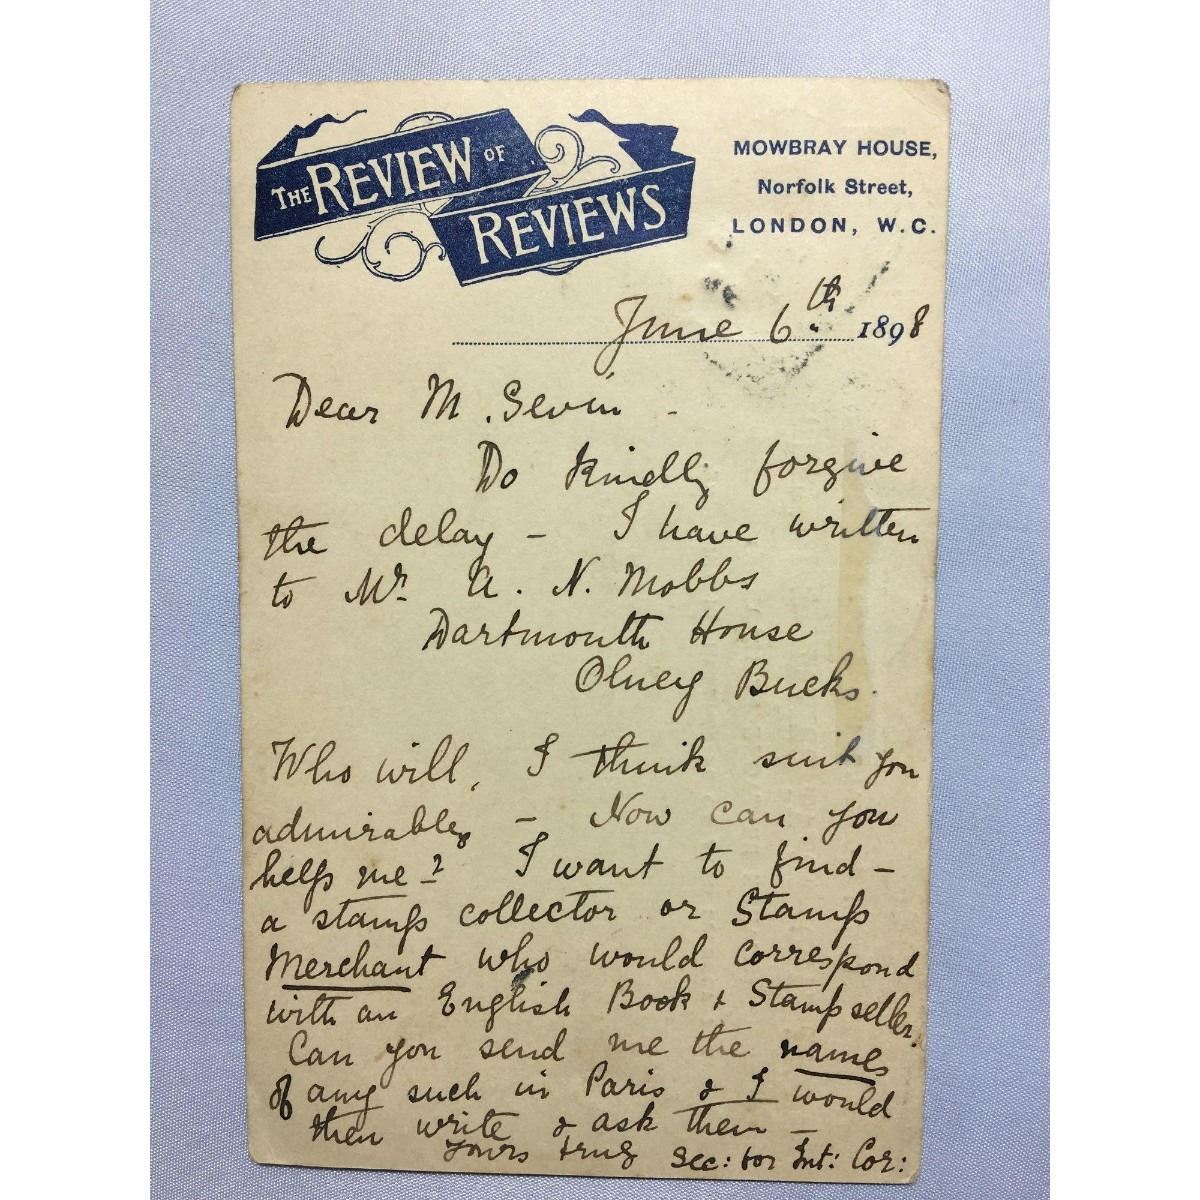 THE REVIEW OF REVIEWS
MOWBRAY HOUSE,
Norfolk Street,
LONDON, W.C.
June 6th 1898
Dear M. Sevin -
Do kindly forgive
the delay - I have written
to Mr. A. N. Mobbs
Dartmouth House
Olney Bucks.
Who will, I think suit you
admirably - Now can you
help me? I want to find -
a stamp collector or Stamp
Merchant who would correspond
with an English Book & Stamp seller.
Can you send me the names
of any such in Paris & I would
then write & ask them -
Yours truly Sec: for Int: Cor: